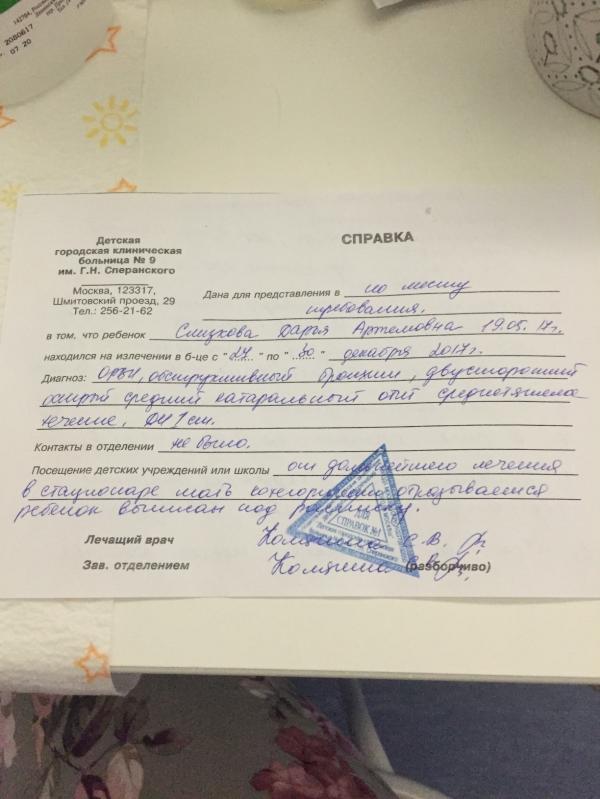 2080617
07 20
СПРАВКА
Детская
городская клиническая
больница № 9
им. Г.Н. Сперанского
Москва, 123317,
Шмитовский проезд, 29
Тел.: 256-21-62
Дана для представления в по месту
требования.
в том, что ребенок Дарья Артемовна 19.05.17г.
находился на излечении в б-це с "27" по "30" декабря 2017г.
Диагноз: ОРВИ, обструктивный бронхит, двусторонний
острый средний катаральный отит среднетяжелое
течение, ДН 1 ст.
Контакты в отделении не было.
Посещение детских учреждений или школы от дальнейшего лечения
в стационаре мать категорически отказывается
ребенок выписан под расписку.
ДЛЯ
СПРАВОК №1
Лечащий врач С.В.
Зав. отделением (разборчиво)